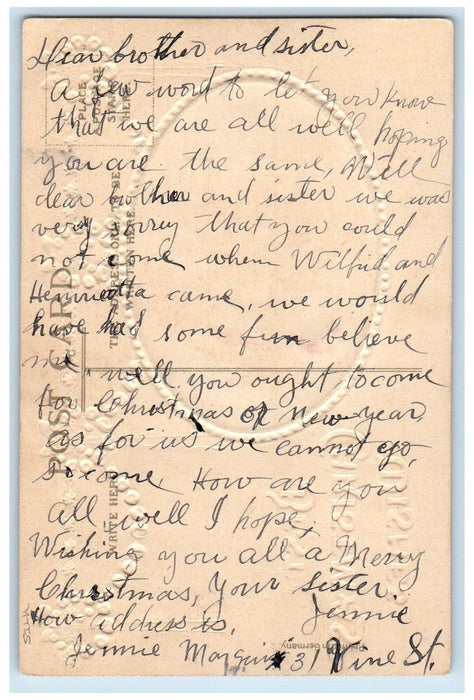 Dear brother and sister,
A few word to let you know
that we are all well hoping
you are the same, Well
dear brother and sister we was
very sorry that you could
not come when Wilfrid and
Henrietta came, we would
have had some fun believe
me, well you ought to come
for Christmas or New year,
as for us we cannot go,
so come. How are you
all well I hope,
Wishing you all a Merry
Christmas, Your sister
Jennie
How address is,
Jennie 31 Vine St.
PLACE
POSTAGE
STAMP
HERE
POST CARD
THE ADDRESS ONLY TO BE
WRITTEN HERE
WRITE HERE
Germany